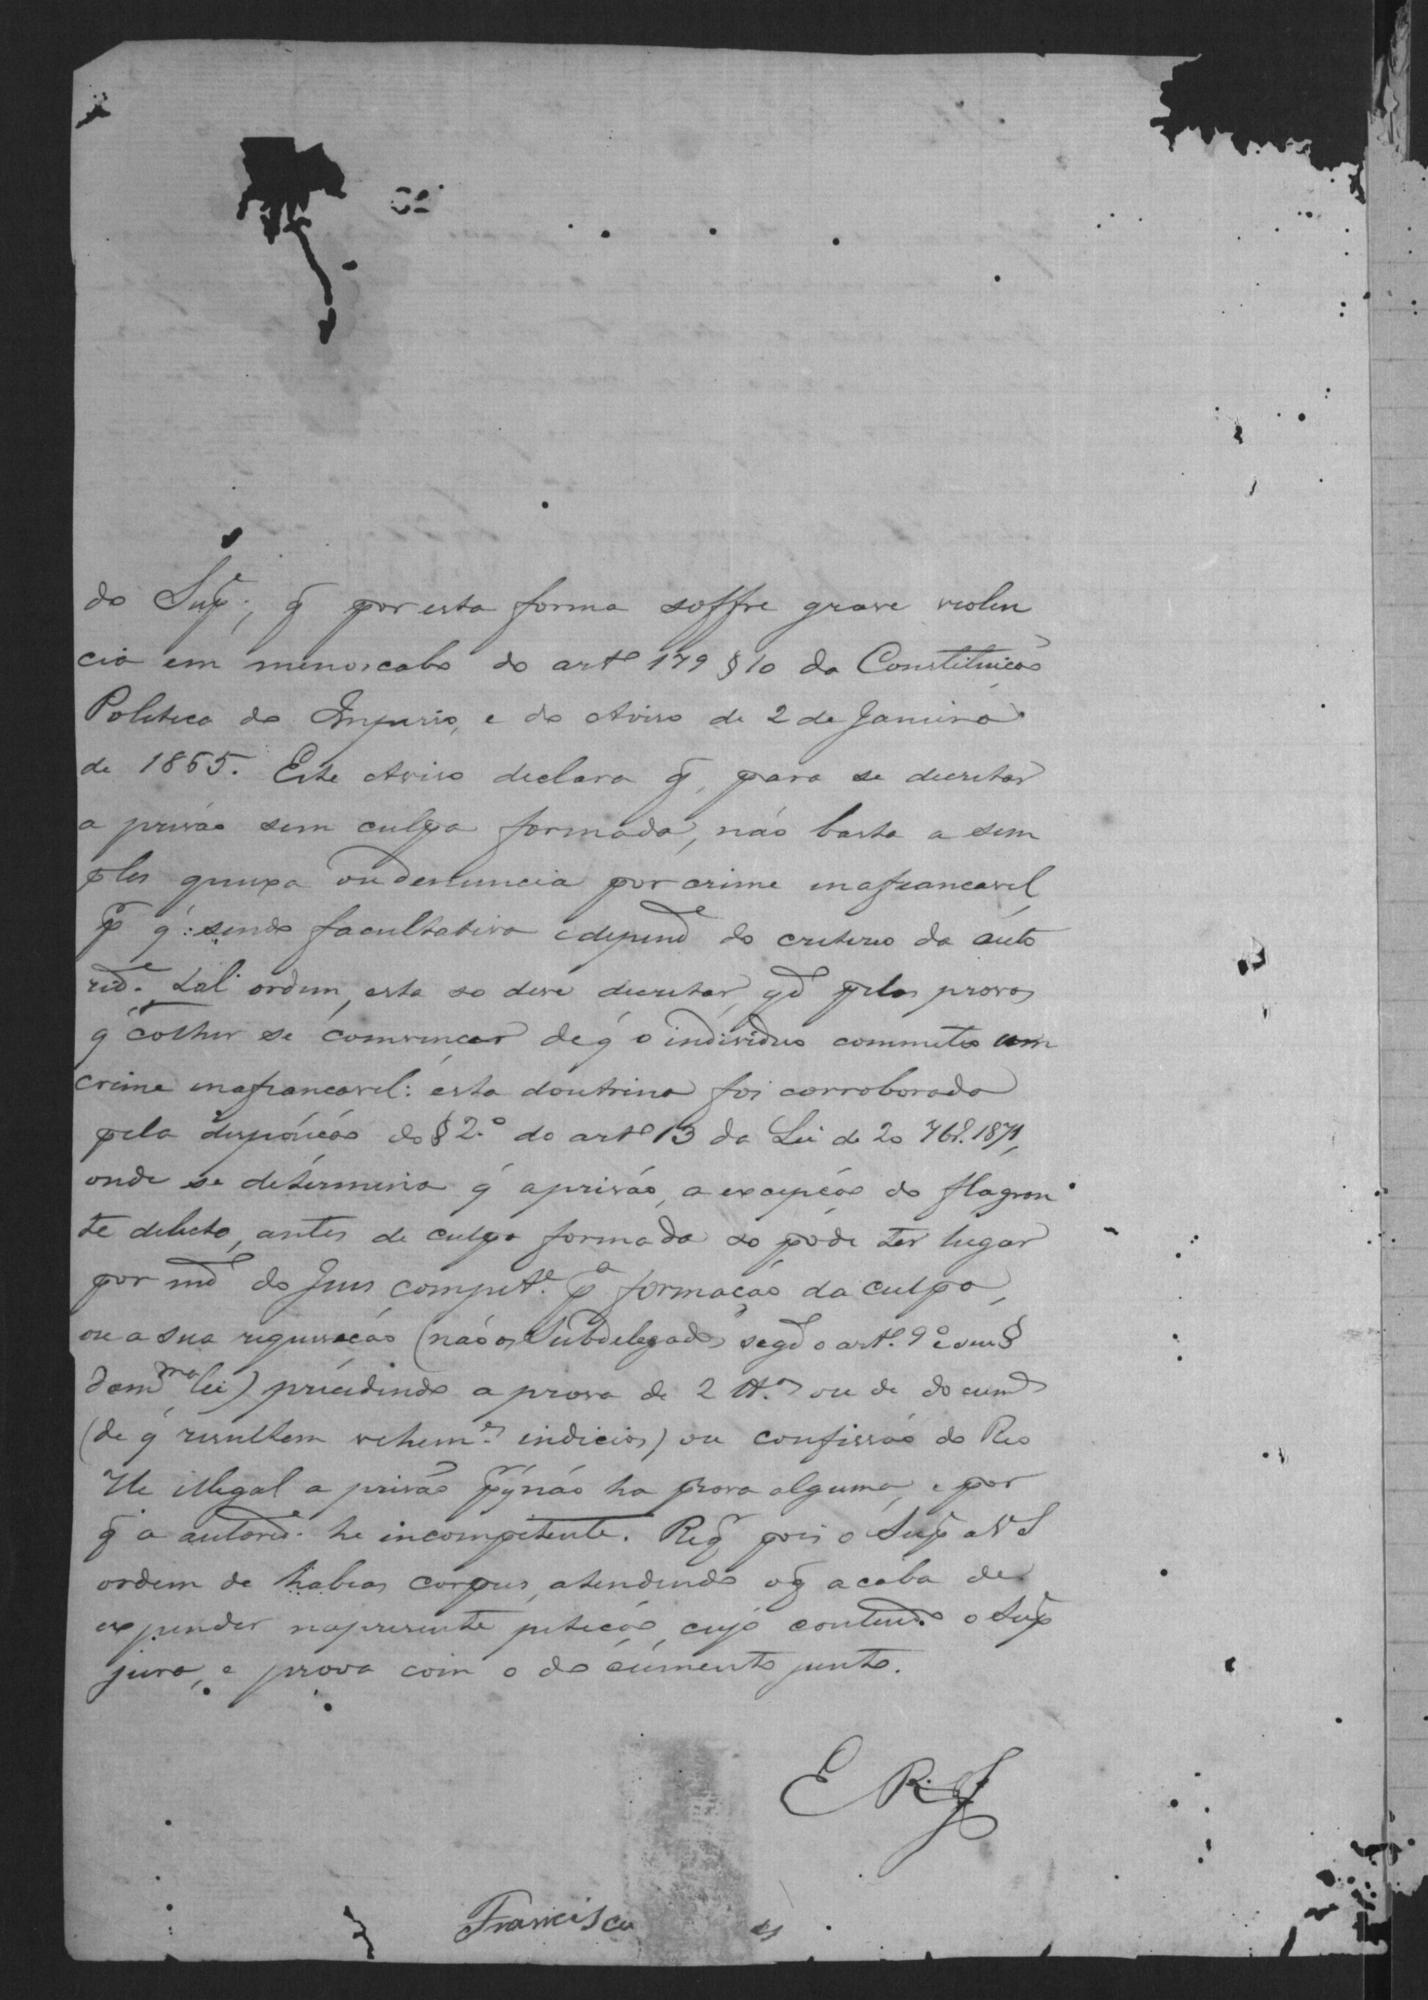 do Supe., q̃ por esta forma soffre grave violen
cia em menoscabo do arto 179 § 10 da Constituição
Politica do Imperio, e do Aviso de 2 de Janeiro
de 1865. Este Aviso declara q̃, para se decretar
a prisão sem culpa formada, não basta a sim
ples queixa ou denuncia por crime inafiancavel,
pr q̃: sendo facultativa e depende do criterio da auto
ride. tal ordem, esta so deve decretar, qdo pelas provas
q̃ colher se convencer de q̃ o individuo commeteo um
crime inafiancavel: esta doutrina foi corroborada
pela disposição do § 2.o do arto 13 da Lei de 20 7br. 1871,
onde se determina q̃ a prisão, a excepção do flagran
te delicto, antes de culpa formada so póde ter lugar
por mdo do Juis compete. pa formação da culpa,
ou a sua requisição (não os Subdelegados segdo o art. 9o e seu §
da mma lei) precedendo a prova de 2 tt.as ou de documdos
(de q̃ resultem vehemes. indicios) ou confissão do Reo
He illegal a prisão pr q̃ não ha prova alguma, e por
q̃ a autoride. he incompetente. Reqr pois o Supe a V S
ordem de habeas corpus, atendendo o q̃ acaba de
expender na presente petição, cujo contendo o Supe
jura, e prova com o documento junto.
E R J
Francisco